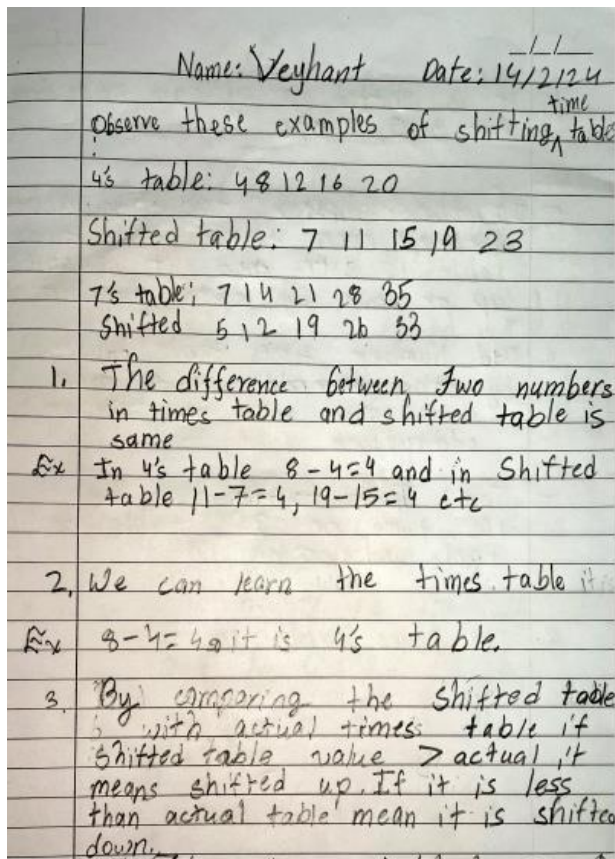 _/_/_
Name: Veyhant Date: 14/2/24
time
Observe these examples of shifting ^ table
:
4's table: 4 8 12 16 20
Shifted table: 7 11 15 19 23
7's table; 7 14 21 28 35
Shifted 5 12 19 26 33
1. The difference between two numbers
in times table and shifted table is
same
Ex In 4's table 8-4=4 and in Shifted
table 11-7=4, 19-15=4 etc
2, We can learn the times table it
Ex 8-4=4 it is 4's table.
3. By comparing the shifted table
with actual times table if
shifted table value > actual, it
means shifted up. If it is less
than actual table mean it is shifted
down.